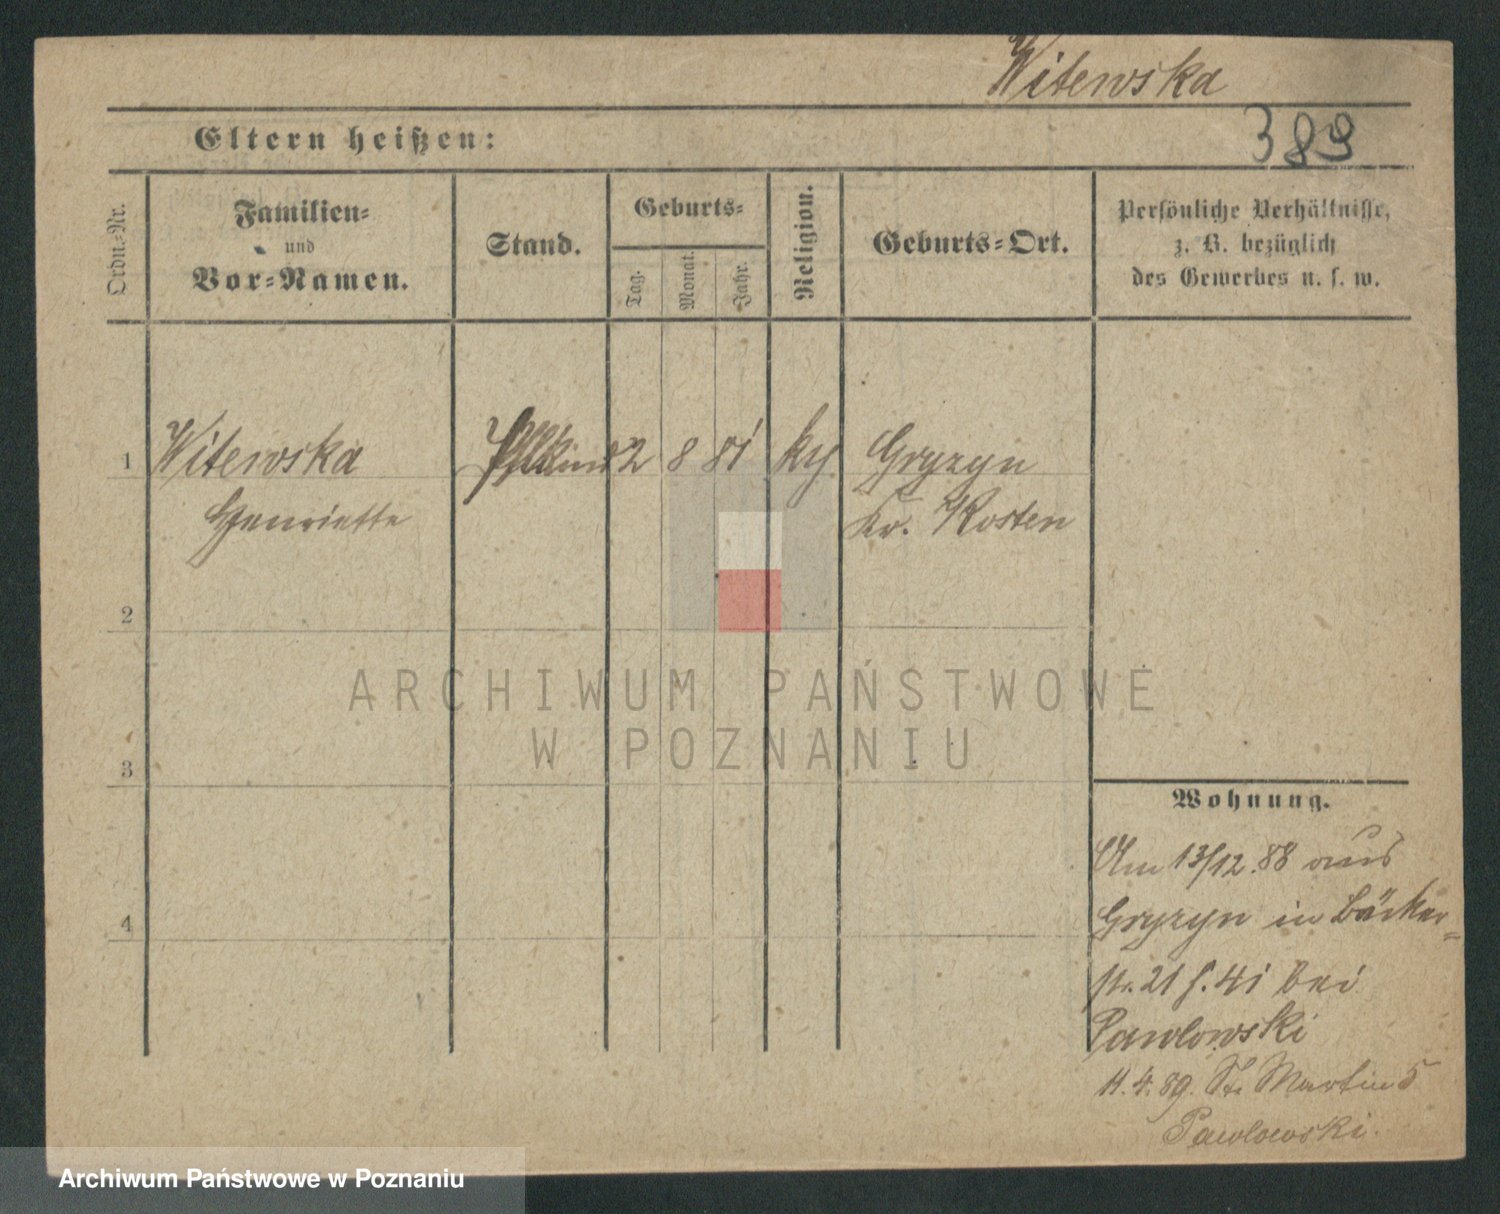 Witewska
389
Eltern heißen:
Ordn.-Nr.
Familien-
und
Vor-Namen.
Stand.
Geburts-
Tag.
Monat.
Jahr.
Religion.
Geburts-Ort.
Persönliche Verhältnisse,
z. B. bezüglich
des Gewerbes u. s. w.
1 Witewska Pflkind 12 8 81 Gryzyn
Henriette Kr. Kosten
2
3
4
Wohnung.
Am 13/12.88 aus
Gryzyn in Bäcker-
str. 21 41 bei
Pawlowski
11.4.89. St. Martin 5
Pawlowski.
ARCHIWUM PAŃSTWOWE
W POZNANIU
Archiwum Państwowe w Poznaniu